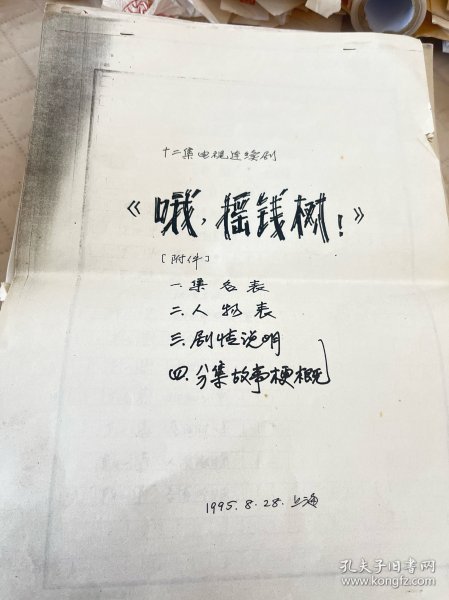 十二集电视连续剧
《哦,摇钱树!》
[附件]
一.集名表
二.人物表
三.剧情说明
四.分集故事梗概
1995.8.28.上海
孔夫子旧书网
www.kongfz.com